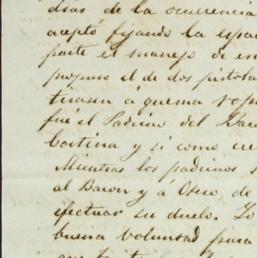 dias de la ocurrencia
acepto fijando la espad
parte el manejo de es
propuso el de dos pistola
tirasen á quema ropa
fué el Padrino del Bar
Cortina y si como cre
Mientras los padrinos
al Baron y a de
efectuar su duelo. Lo
buena voluntad para